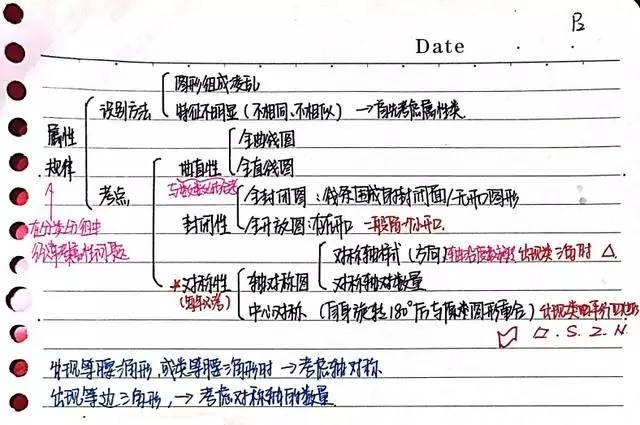 P2
Date
图形组成凌乱
识别方法
特征不明显（不相同、不相似）→ 首先考虑属性类
属性
规律
全曲线图
曲直性
全直线图
考点
全封闭图：线条围成的封闭面/无开口图形
封闭性
全开放图：有开口 一般留一个小开口
在分类分组中
经常考属性问题
对称轴样式（方向） 出现类三角时 △
*对称性
轴对称图
对称轴数量
中心对称（自身旋转180°后与原来图形重合）出现类平行四边形
▱ . S . Z . N .
出现等腰三角形，或类等腰三角形时 → 考虑轴对称
出现等边三角形，→ 考虑对称轴的数量